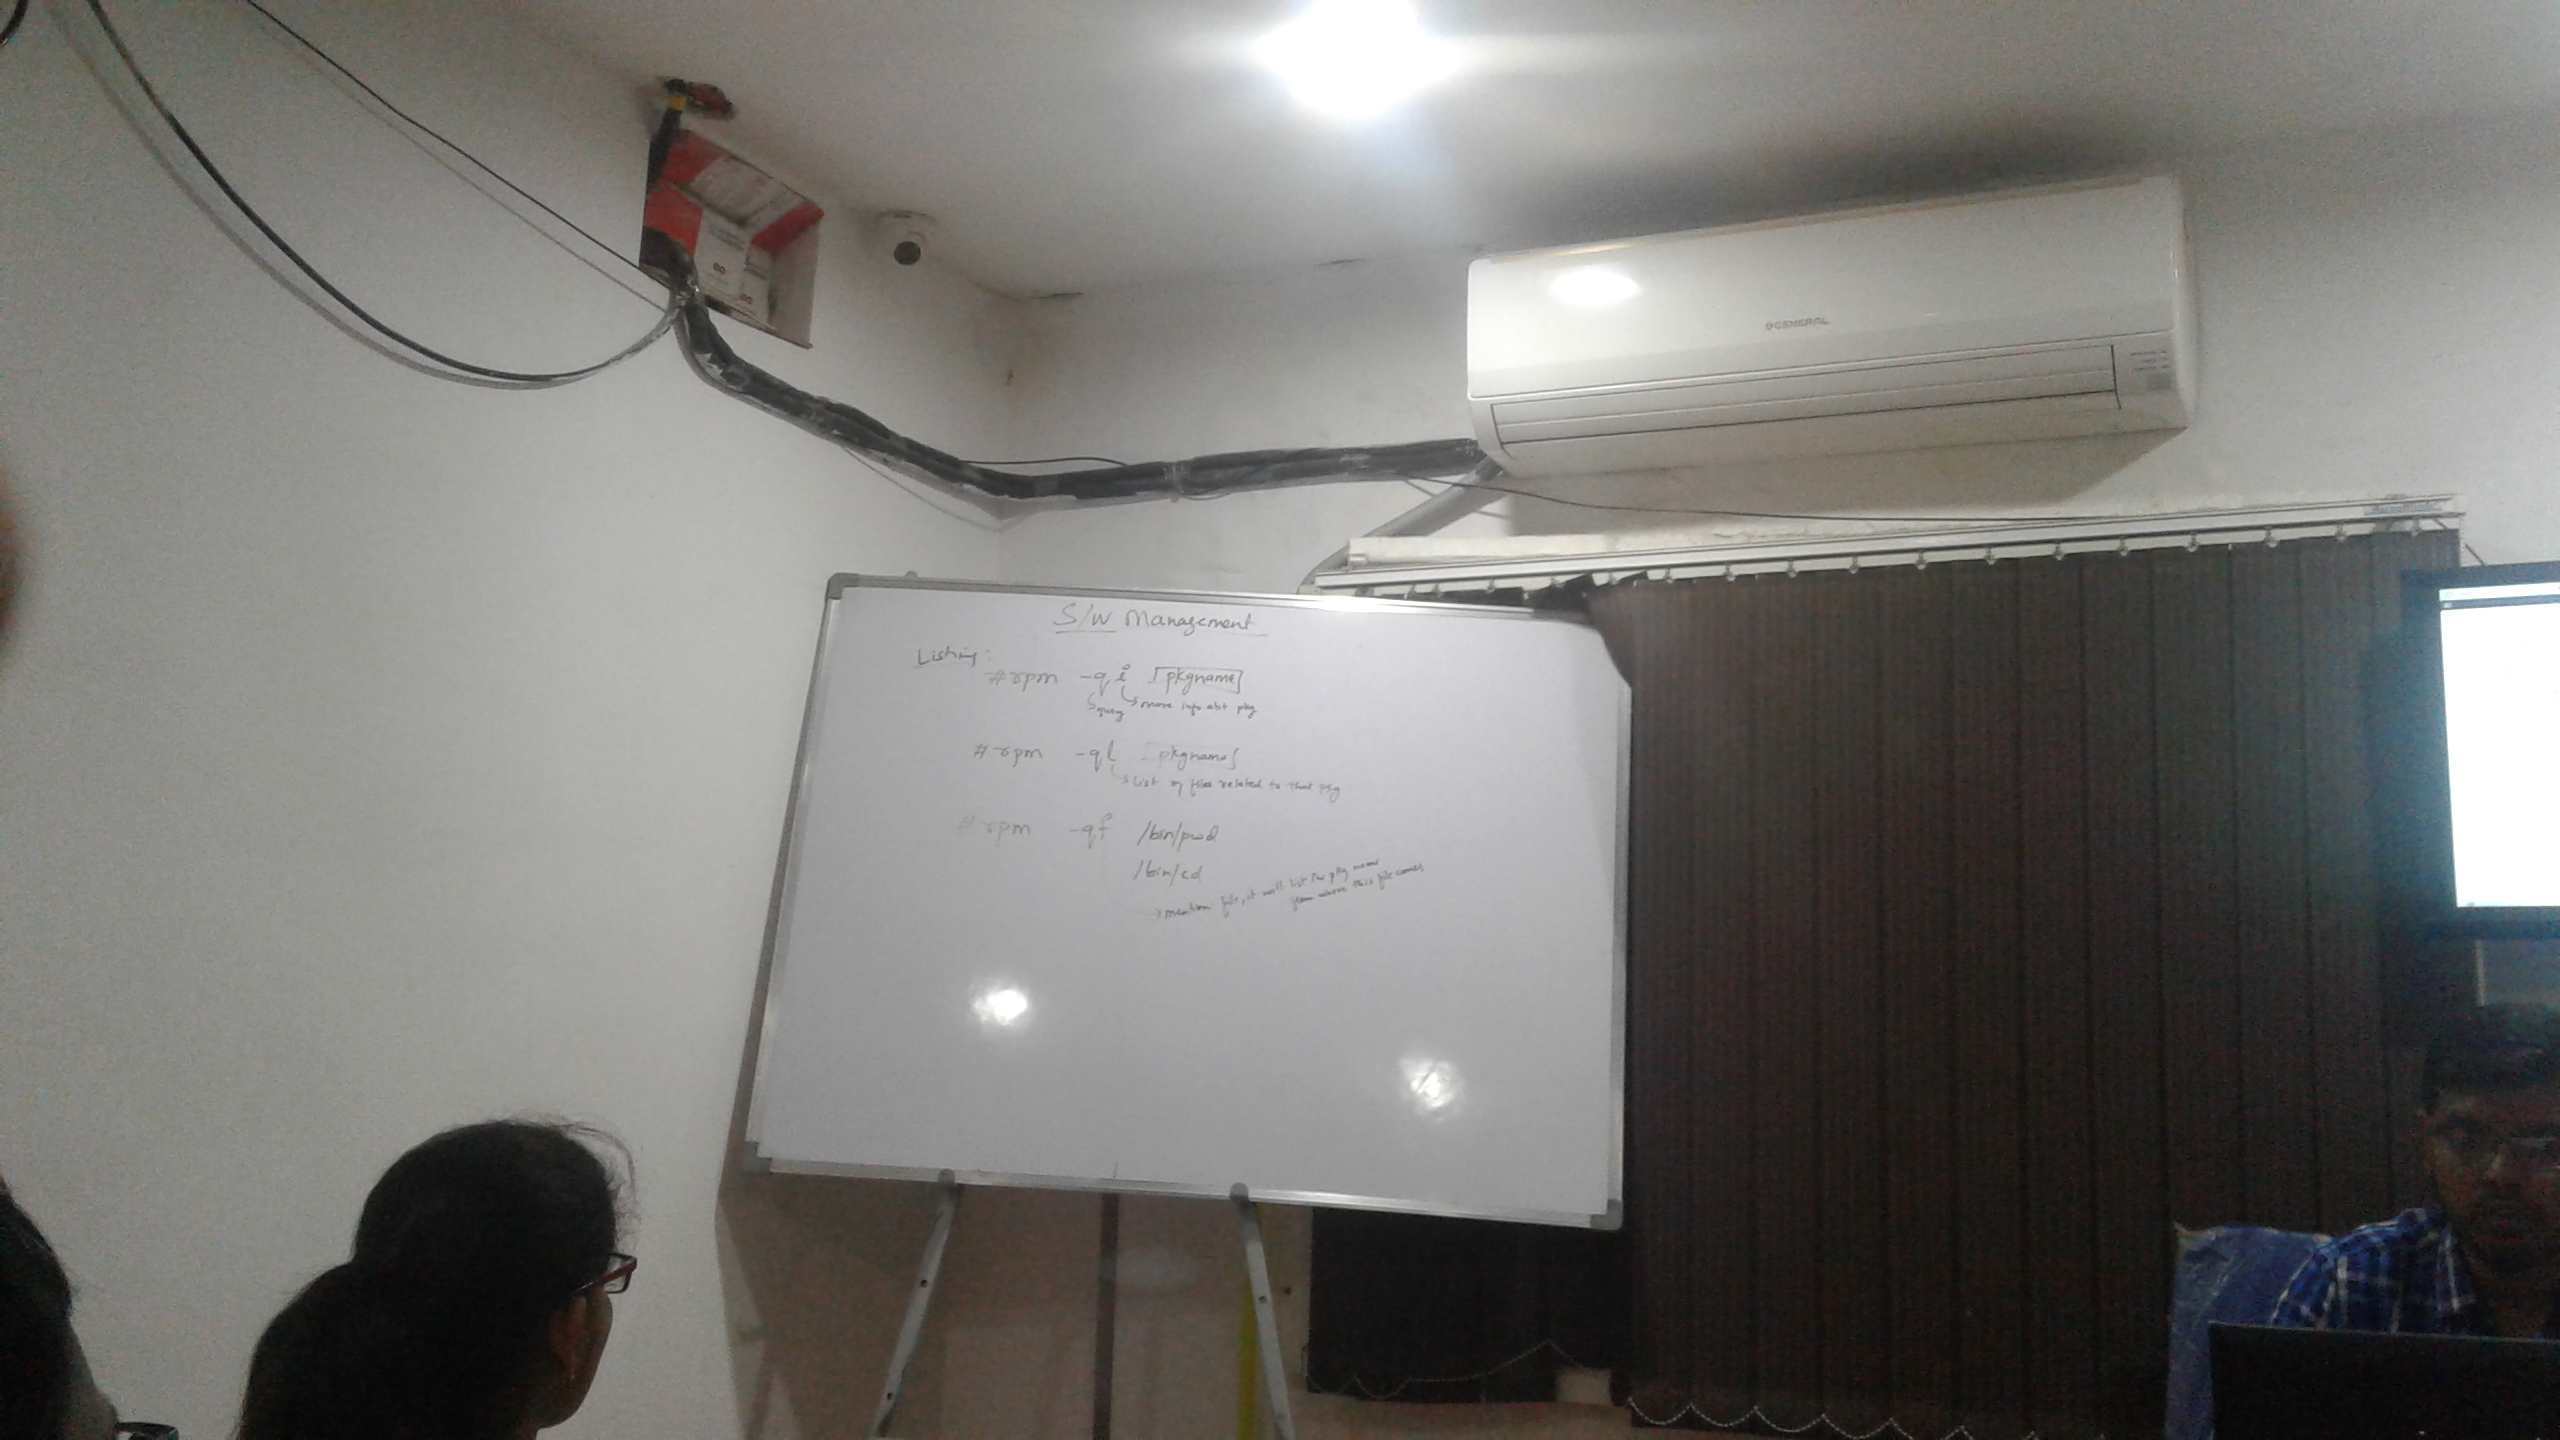 GENERAL
S/W Management
Listing:
#rpm -qi [pkgname]
query more info abt pkg
#rpm -ql [pkgname]
List of files related to that pkg
#rpm -qf /bin/pwd
/bin/cd
mention file, it will list the pkg name
from where this file comes